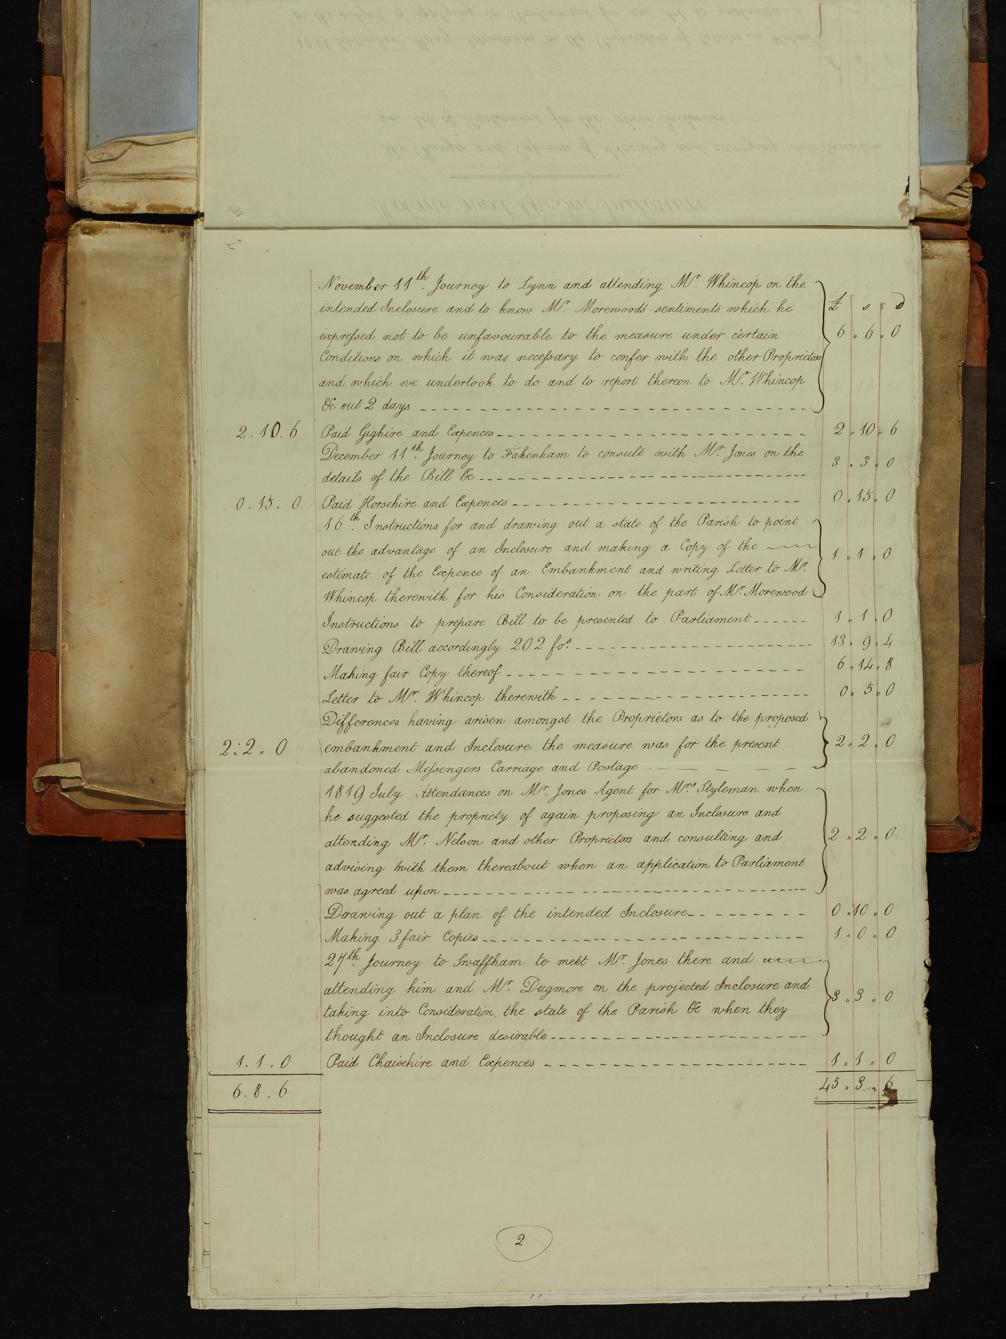 £ s d
November 11th. Journey to Lynn and attending Mr. Whincop on the
intended Inclosure and to know Mr. Morewoods sentiments which he
expressed not to be unfavourable to the measure under certain 6 . 6 . 0
Conditions on which it was necessary to confer with the other Proprietors
and which we undertook to do and to report thereon to Mr. Whincop
&c out 2 days
2 . 10 . 6 Paid Gighire and Expences 2 . 10 . 6
December 11th. Journey to Fakenham to consult with Mr. Jones on the
details of the Bill &c 3 . 3 . 0
0 . 15 . 0 Paid Horsehire and Expences 0 . 15 . 0
16th. Instructions for and drawing out a state of the Parish to point
out the advantage of an Inclosure and making a Copy of the 1 . 1 . 0
estimate of the Expence of an Embankment and writing Letter to Mr.
Whincop therewith for his Consideration on the part of Mr. Morewood
Instructions to prepare Bill to be presented to Parliament 1 . 1 . 0
Drawing Bill accordingly 202 fos. 13 . 9 . 4
Making fair Copy thereof 6 . 14 . 8
Letter to Mr. Whincop therewith 0 . 5 . 0
Differences having arisen amongst the Proprietors as to the proposed
2 . 2 . 0 embankment and Inclosure the measure was for the present 2 . 2 . 0
abandoned Messengers Carriage and Postage
1819 July Attendances on Mr. Jones Agent for Mrs. Styleman when
he suggested the propriety of again proposing an Inclosure and
attending Mr. Nelson and other Proprietors and consulting and 2 . 2 . 0
advising with them thereabout when an application to Parliament
was agreed upon
Drawing out a plan of the intended Inclosure 0 . 10 . 0
Making 3 fair Copies 1 . 0 . 0
27th. Journey to Swaffham to meet Mr. Jones there and
attending him and Mr. Dugmore on the projected Inclosure and 3 . 3 . 0
taking into Consideration the state of the Parish &c when they
thought an Inclosure desirable
1 . 1 . 0 Paid Chaisehire and Expences 1 . 1 . 0
6 . 8 . 6 45 . 3 . 6
2